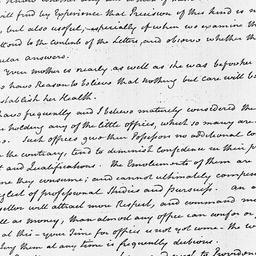 will find by Experience that Precision of this kind is n
but also useful, especially of when we examine th
attend to the contents of the Letters, and observe whether th
ular answers.
Your mother is nearly as well as she was before her
have Reason to believe that nothing but care will be
establish her Health.
have frequently and I believe maturely considered the
holding any of the little offices, which so many are
Such offices give their Possessors no additional co
the contrary, tend to diminish confidence in their p
and Qualifications. The Emoluments of them are
they consume; and cannot ultimately compens
neglect of professional Studies and pursuits. An a
will attract more Respect, and command m
ll as money, than almost any office can confer or
at this - your Time for offices is not yet come - the w
any them at any time is frequently dubious.